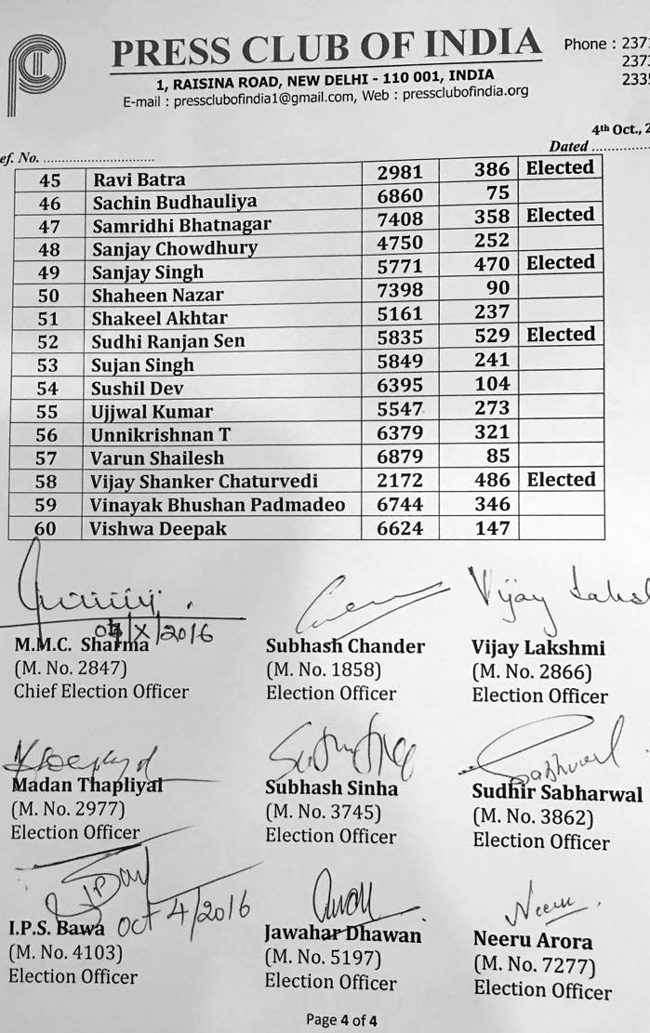 PRESS CLUB OF INDIA
1, RAISINA ROAD, NEW DELHI - 110 001, INDIA
E-mail : pressclubofindia1@gmail.com, Web : pressclubofindia.org
Phone : 2371
2373
2335
4th Oct., 2
ef. No. ............................ Dated ...............
45 Ravi Batra 2981 386 Elected
46 Sachin Budhauliya 6860 75
47 Samridhi Bhatnagar 7408 358 Elected
48 Sanjay Chowdhury 4750 252
49 Sanjay Singh 5771 470 Elected
50 Shaheen Nazar 7398 90
51 Shakeel Akhtar 5161 237
52 Sudhi Ranjan Sen 5835 529 Elected
53 Sujan Singh 5849 241
54 Sushil Dev 6395 104
55 Ujjwal Kumar 5547 273
56 Unnikrishnan T 6379 321
57 Varun Shailesh 6879 85
58 Vijay Shanker Chaturvedi 2172 486 Elected
59 Vinayak Bhushan Padmadeo 6744 346
60 Vishwa Deepak 6624 147
Vijay Laksh
04/X/2016
M.M.C. Sharma Subhash Chander Vijay Lakshmi
(M. No. 2847) (M. No. 1858) (M. No. 2866)
Chief Election Officer Election Officer Election Officer
Sabhuwal
Madan Thapliyal Subhash Sinha Sudhir Sabharwal
(M. No. 2977) (M. No. 3745) (M. No. 3862)
Election Officer Election Officer Election Officer
Neeru
Oct 4/2016
I.P.S. Bawa Jawahar Dhawan Neeru Arora
(M. No. 4103) (M. No. 5197) (M. No. 7277)
Election Officer Election Officer Election Officer
Page 4 of 4